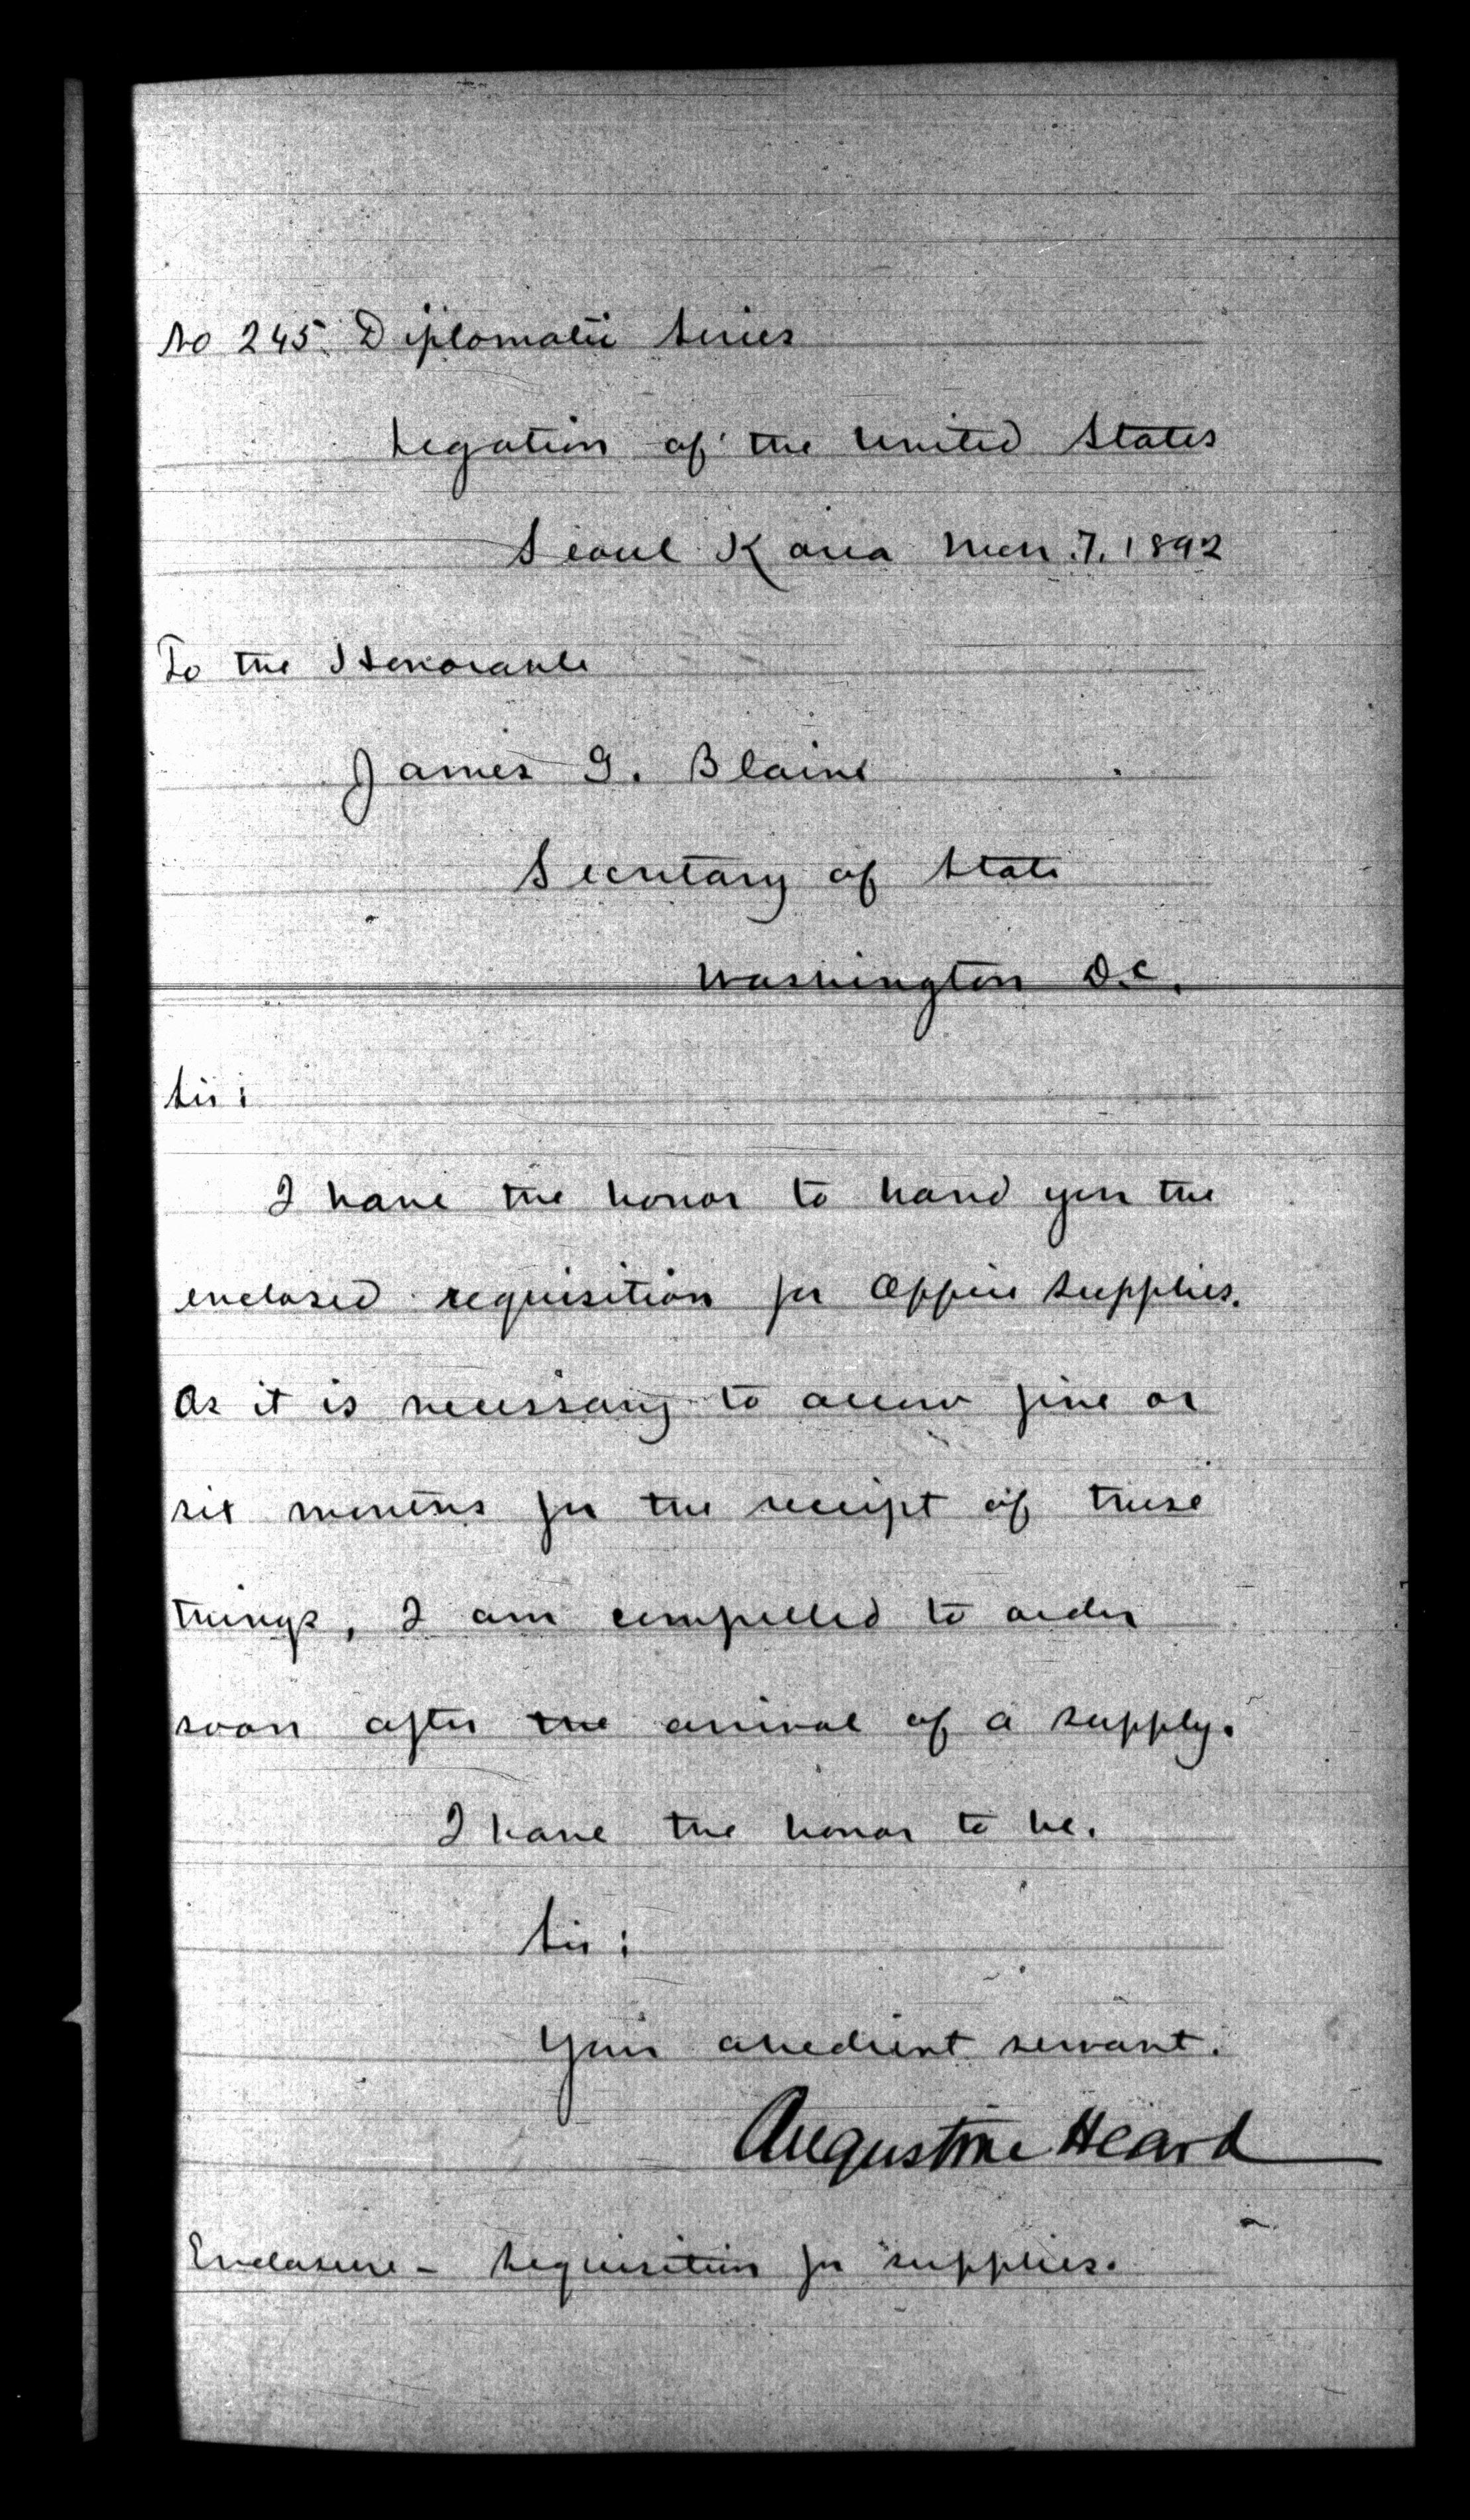 No 245. Diplomatic Series
Legation of the United States
Seoul Korea Mch. 7. 1892
To the Honorable
James G. Blaine
Secretary of State
Washington D.C.
Sir:
I have the honor to hand you the
enclosed requisition for Office supplies.
As it is necessary to allow five or
six months for the receipt of these
things, I am compelled to order
soon after the arrival of a supply.
I have the honor to be.
Sir:
Your obedient servant.
Augustine Heard
Enclosure - Requisition for supplies.